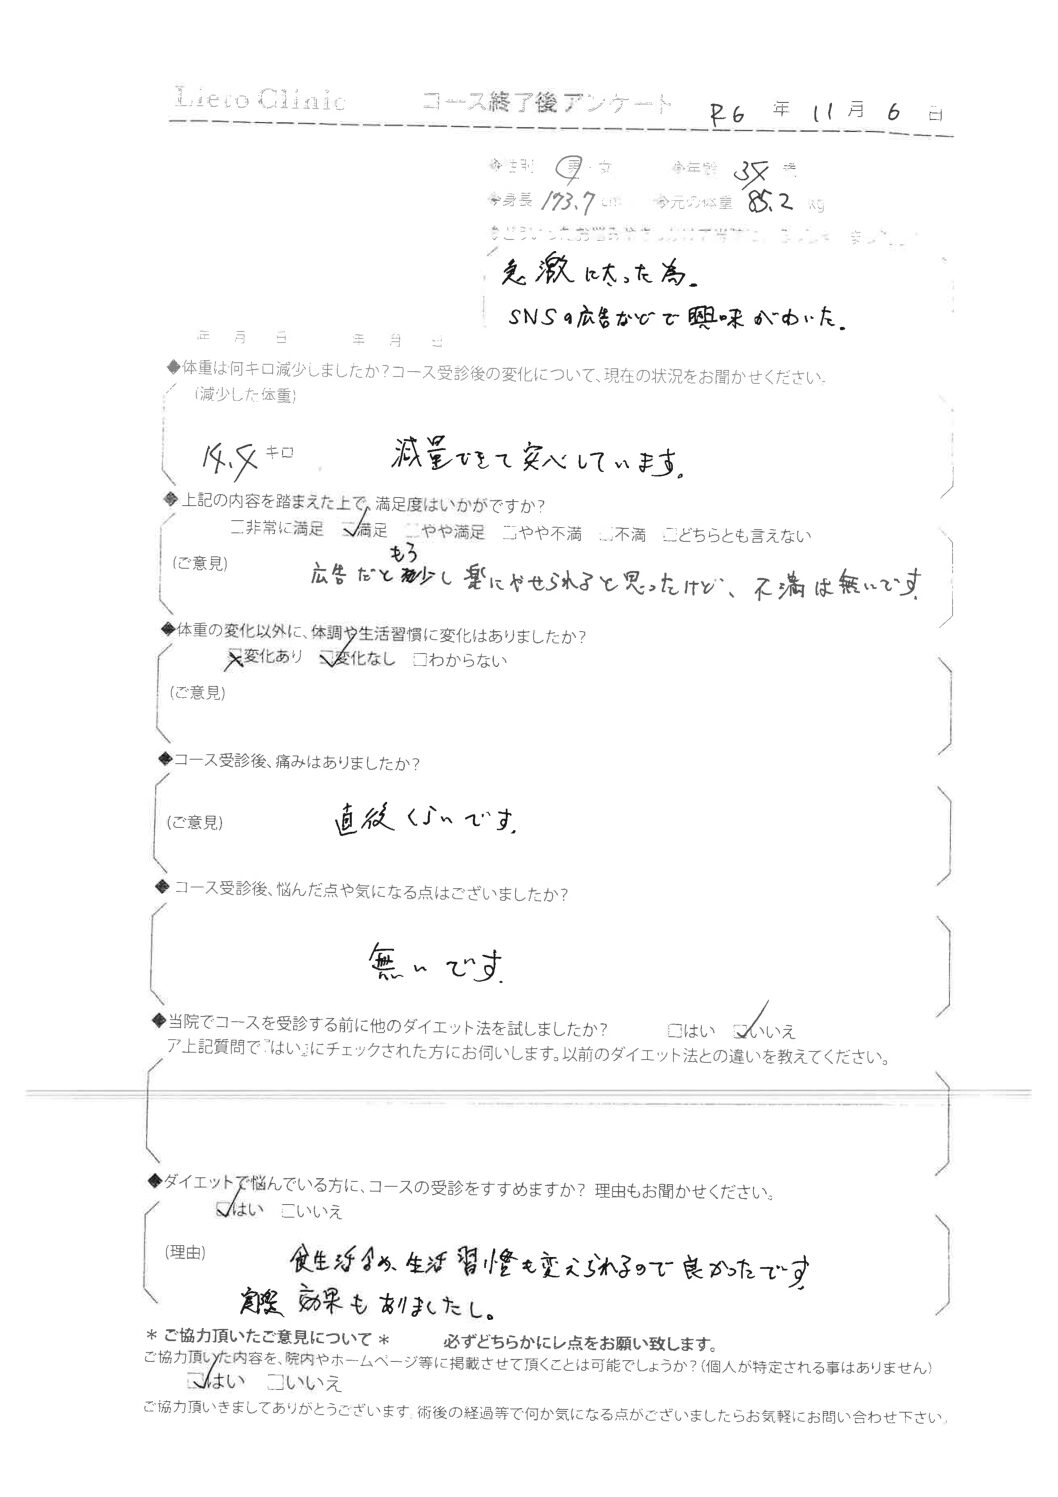 Lieto Clinic コース終了後アンケート R6 年 11 月 6 日
◆性別 男・女 ◆年齢 歳
◆身長 173.7 cm ◆元の体重 85.2 kg
急激に太った為。
SNSの広告などで興味がわいた。
年 月 日 年 月 日
◆体重は何キロ減少しましたか?コース受診後の変化について、現在の状況をお聞かせください。
(減少した体重)
14.4 キロ 減量できて安心しています。
◆上記の内容を踏まえた上で、満足度はいかがですか?
□非常に満足 ☑満足 □やや満足 □やや不満 □不満 □どちらとも言えない
(ご意見)
広告だともう少し楽にやせられると思ったけど、不満は無いです。
◆体重の変化以外に、体調や生活習慣に変化はありましたか?
☒変化あり ☑変化なし □わからない
(ご意見)
◆コース受診後、痛みはありましたか?
(ご意見) 直後くらいです。
◆コース受診後、悩んだ点や気になる点はございましたか?
無いです。
◆当院でコースを受診する前に他のダイエット法を試しましたか? □はい ☑いいえ
ア上記質問で『はい』にチェックされた方にお伺いします。以前のダイエット法との違いを教えてください。
◆ダイエットで悩んでいる方に、コースの受診をすすめますか? 理由もお聞かせください。
☑はい □いいえ
(理由) 食生活含め、生活習慣も変えられるので良かったです
実際 効果もありましたし。
＊ご協力頂いたご意見について＊ 必ずどちらかにレ点をお願い致します。
ご協力頂いた内容を、院内やホームページ等に掲載させて頂くことは可能でしょうか?(個人が特定される事はありません)
☑はい □いいえ
ご協力頂いきましてありがとうございます。術後の経過等で何か気になる点がございましたらお気軽にお問い合わせ下さい。